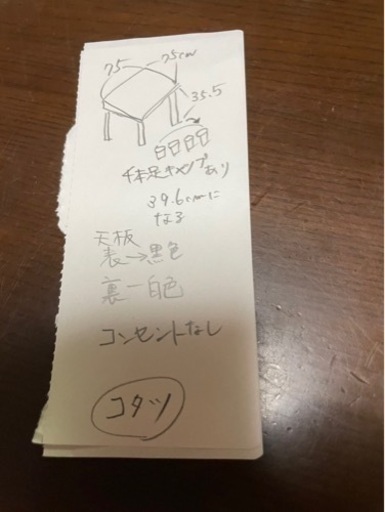 75 75cm
35.5
継足キャップあり
39.6cmに
なる
天板
表→黒色
裏ー白色
コンセントなし
コタツ